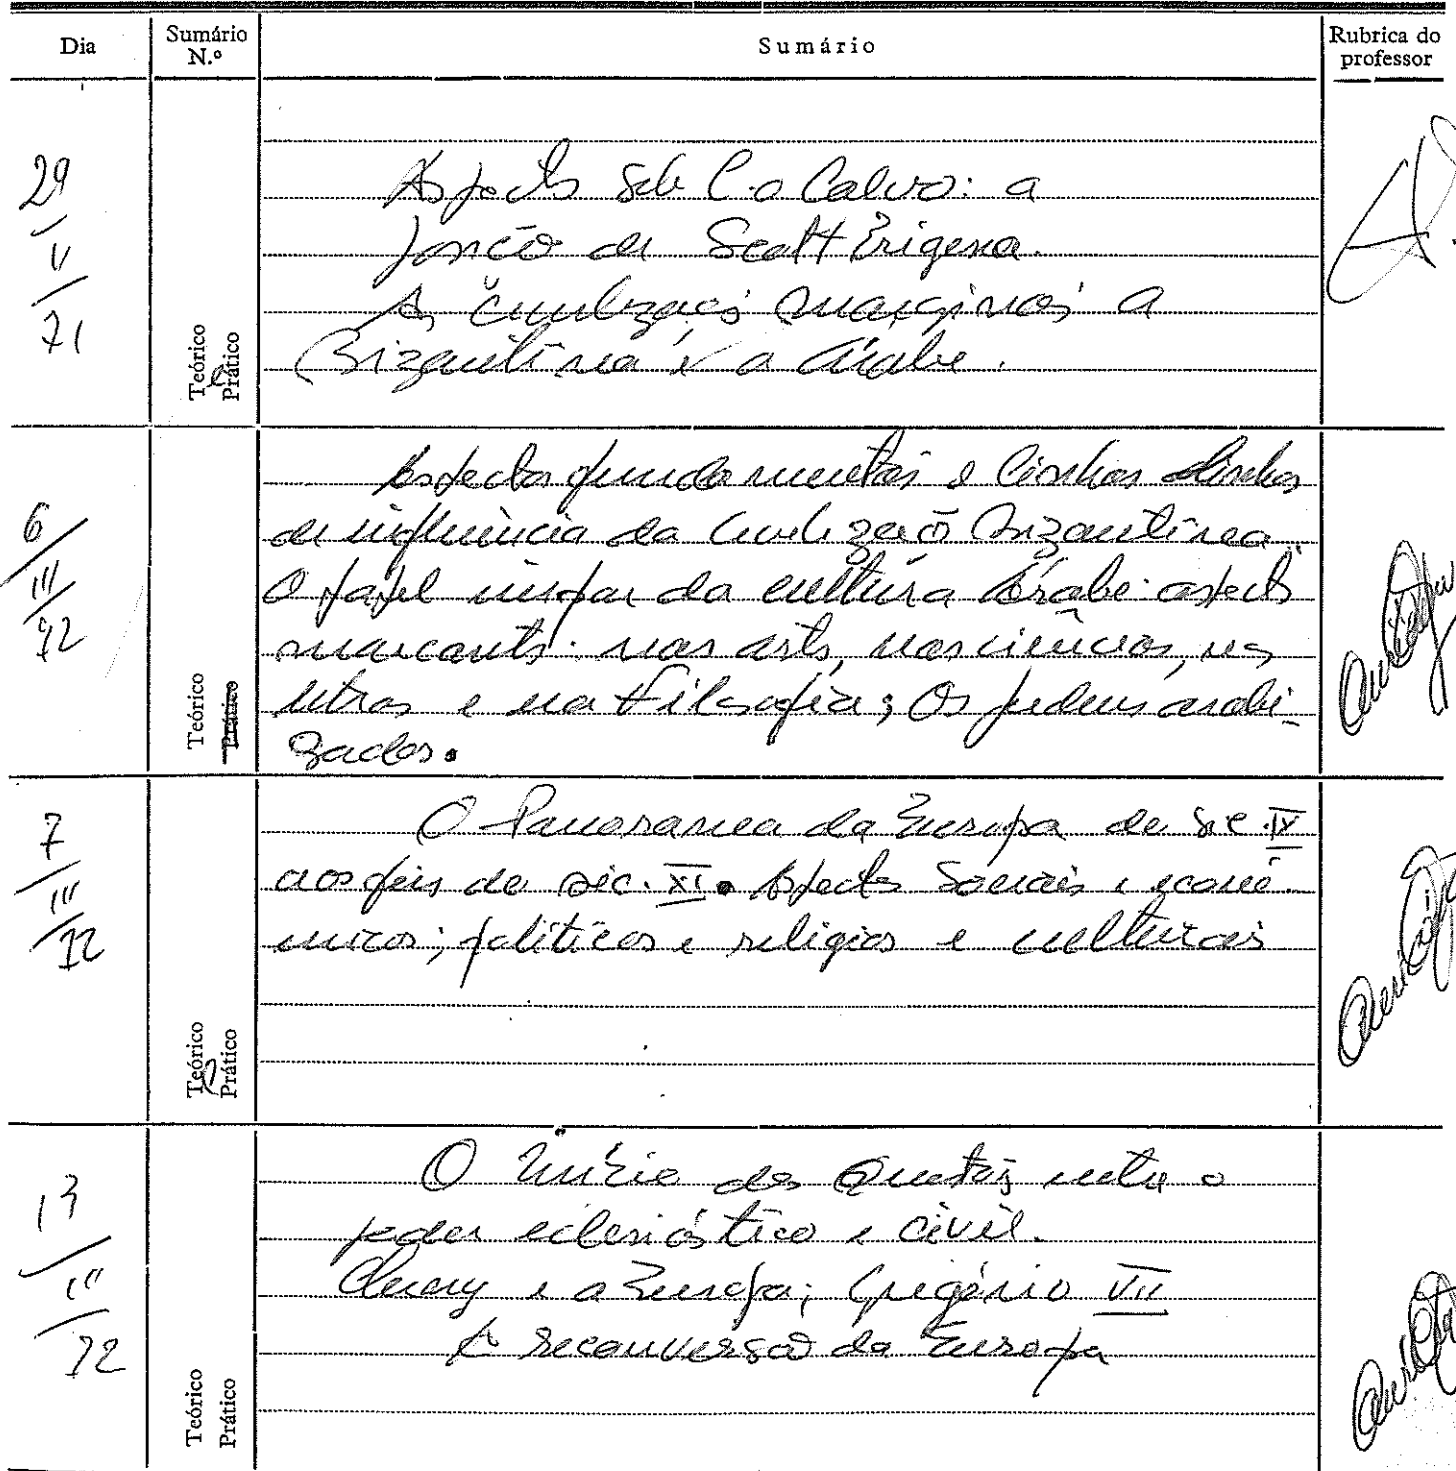 Dia
Sumário N.º
Sumário
Rubrica do professor
29
II
71
Teórico
Prático
Aspects sob C. o Calvo: a
função de Scott Erigena.
As civilizações marginais a
Bizantina e a árabe.
6
III
72
Teórico
Prático
Aspectos fundamentais e linhas
de influência da Civilização Bizantínea
O papel ímpar da cultura Árabe: aspects
marcants: nas arts, nas ciências, nas
letras e na Filosofia; Os judeus arabi-
zados.
7
III
72
Teórico
Prático
O Panorama da Europa de séc. IX
aos fins do séc. XI. Aspectos Sociais e econó-
micos; políticos e religios e culturais
13
III
72
Teórico
Prático
O Início das Questões entre o
poder eclesiástico e civil.
Cluny e a Europa; Gregório VII
A reconversão da Europa